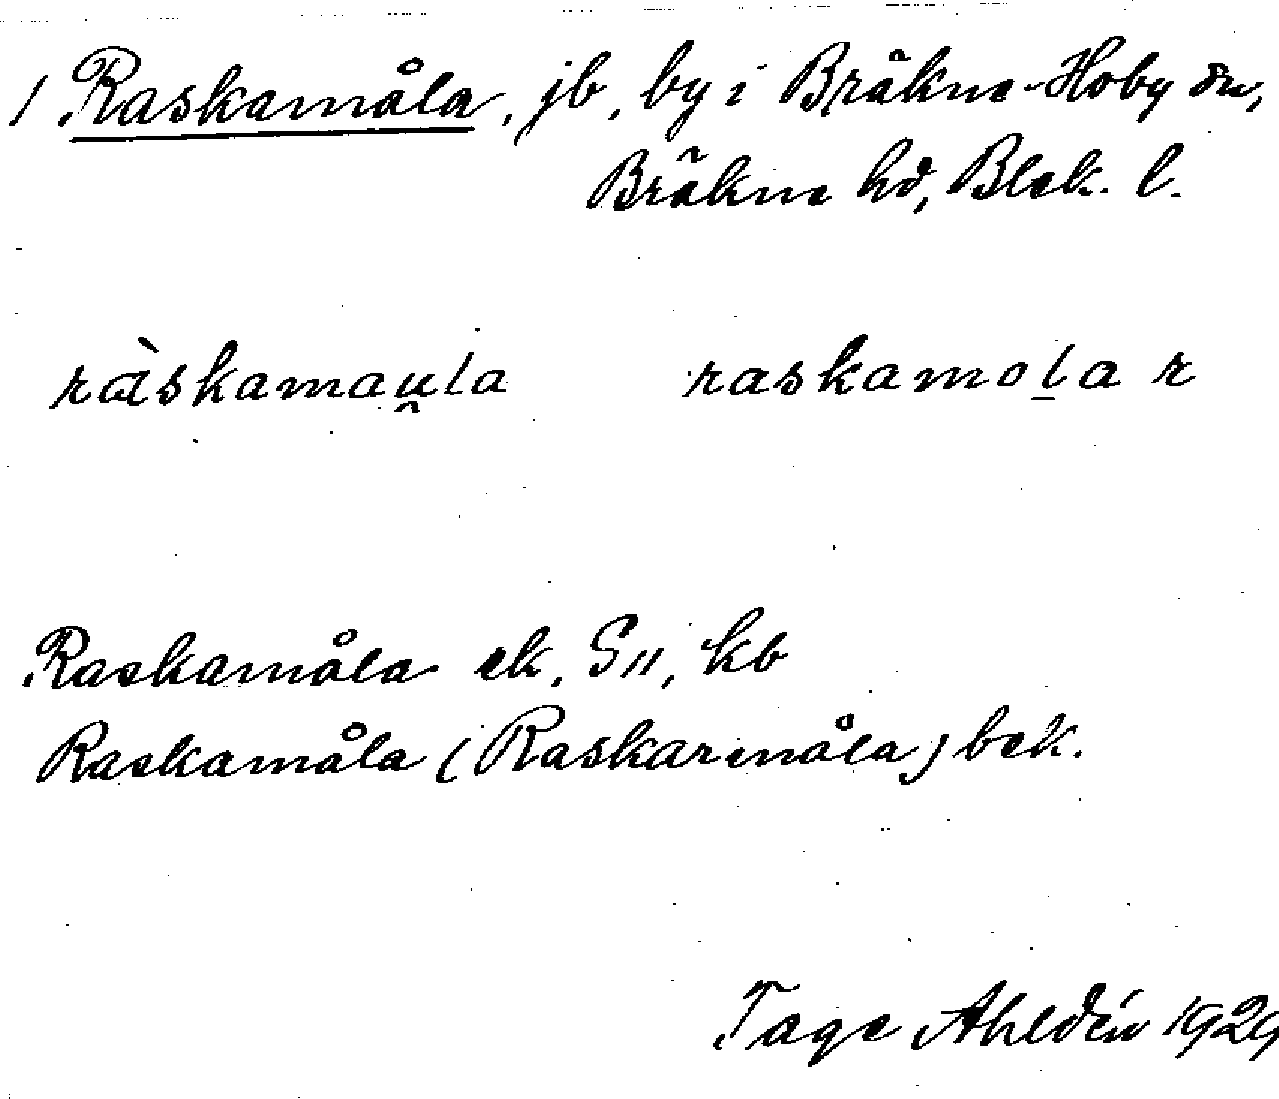 1 Raskamåla, jb, by i Bräkne-Hoby sn,
Bräkne hd, Blek. l.
ràskamau̯la raskamola r
Raskamåla ek. S11, kb
Raskamåla (Raskarmåla) bek.
Tage Ahldén 1929